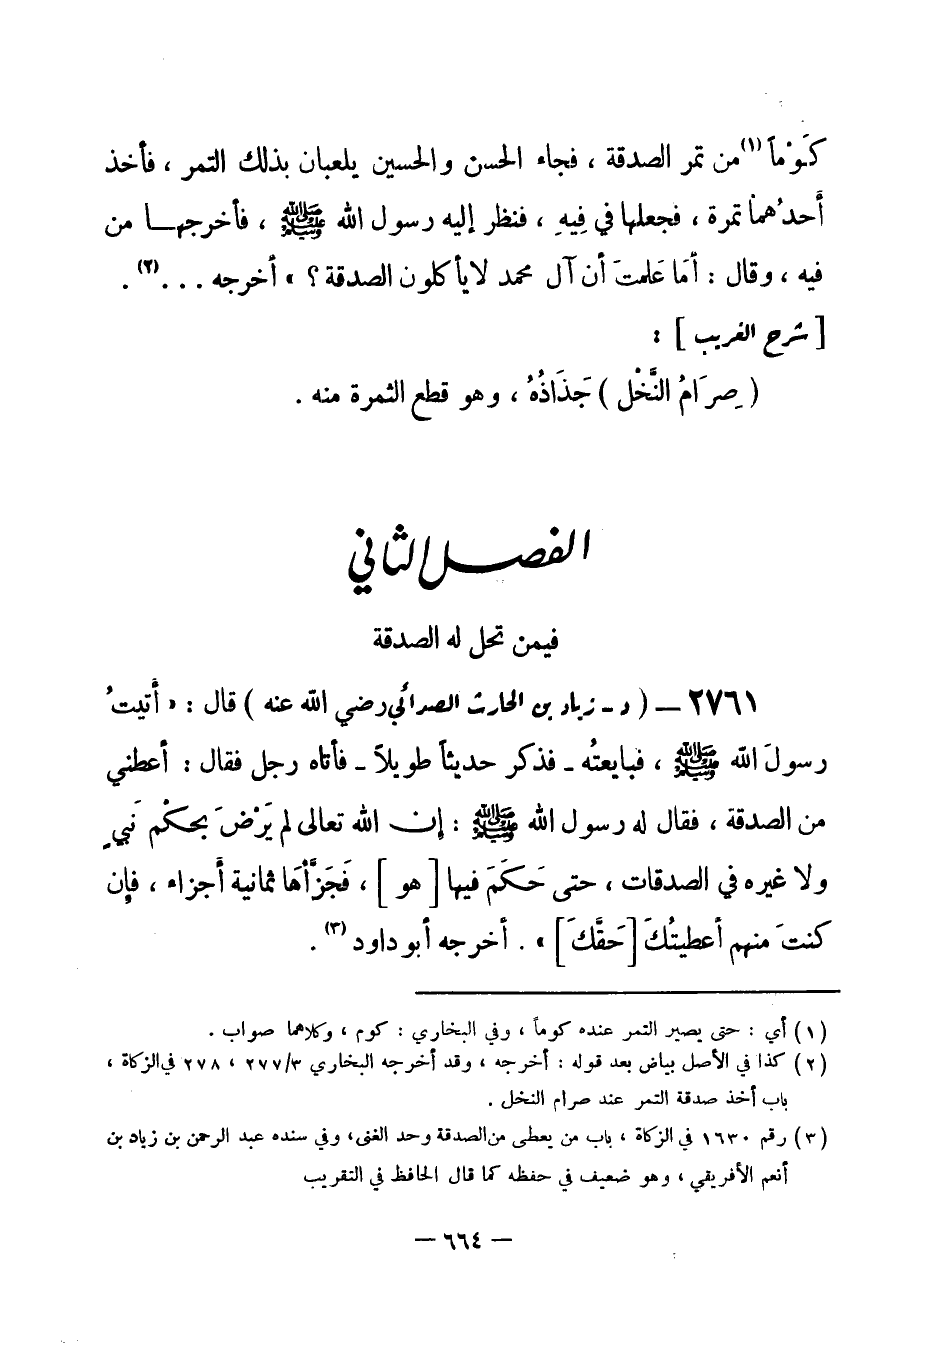 كَوْماً (١) من تمر الصدقة ، فجاء الحسن والحسين يلعبان بذلك التمر ، فأخذ
أحدُهما تمرة ، فجعلها في فِيهِ ، فنظر إليه رسول الله ﷺ ، فأخرجها من
فيه ، وقال : أمَا عَلمتَ أن آل محمد لا يأكلون الصدقة ؟ » أخرجه ... (٢) .
[ شرح الغريب ] :
( صِرَامُ النَّخْل ) جَذَاذُهُ ، وهو قطع الثمرة منه .
الفصل الثاني
فيمن تحل له الصدقة
٢٧٦١ – ( د - زياد بن الحارث الصدائي رضي الله عنه ) قال : « أتيتُ
رسولَ الله ﷺ ، فبايعتُه - فذكر حديثاً طويلاً - فأتاه رجل فقال : أعطني
من الصدقة ، فقال له رسول الله ﷺ : إن الله تعالى لم يَرْضَ بحكْم نَبيٍ
ولا غيره في الصدقات ، حتى حَكَمَ فيها [ هو ] ، فَجَزَّأها ثمانية أجزاء ، فإن
كنتَ منهم أعطيتُكَ [ حَقَّكَ ] » . أخرجه أبو داود (٣) .
(١) أي : حتى يصير التمر عنده كوماً ، وفي البخاري : كوم ، وكلاهما صواب .
(٢) كذا في الأصل بياض بعد قوله : أخرجه ، وقد أخرجه البخاري ٢٧٧/٣ ، ٢٧٨ في الزكاة ،
باب أخذ صدقة التمر عند صرام النخل .
(٣) رقم ١٦٣٠ في الزكاة ، باب من يعطى من الصدقة وحد الغنى، وفي سنده عبد الرحمن بن زياد بن
أنعم الأفريقي ، وهو ضعيف في حفظه كما قال الحافظ في التقريب
— ٦٦٤ —